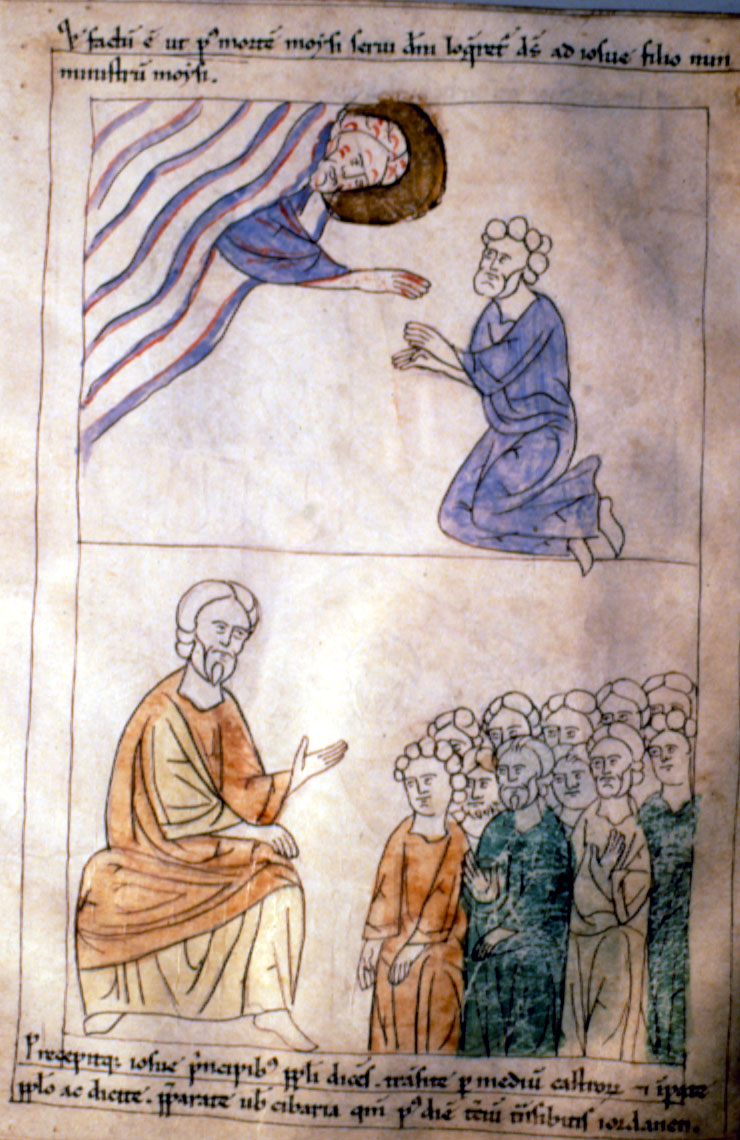 factū ē ut p' mortē moysi serui dn̄i loq̄ret' ds̄ ad iosue filio nun
ministrū moysi.
Precepitq; iosue p̄ncipib' ppli dicēs. trāsite p mediū castrorū ⁊ īpate
pplo ac dicite. pparate uob cibaria qm̄ p' diē t̄ciū t̄nsibitis iordanen.